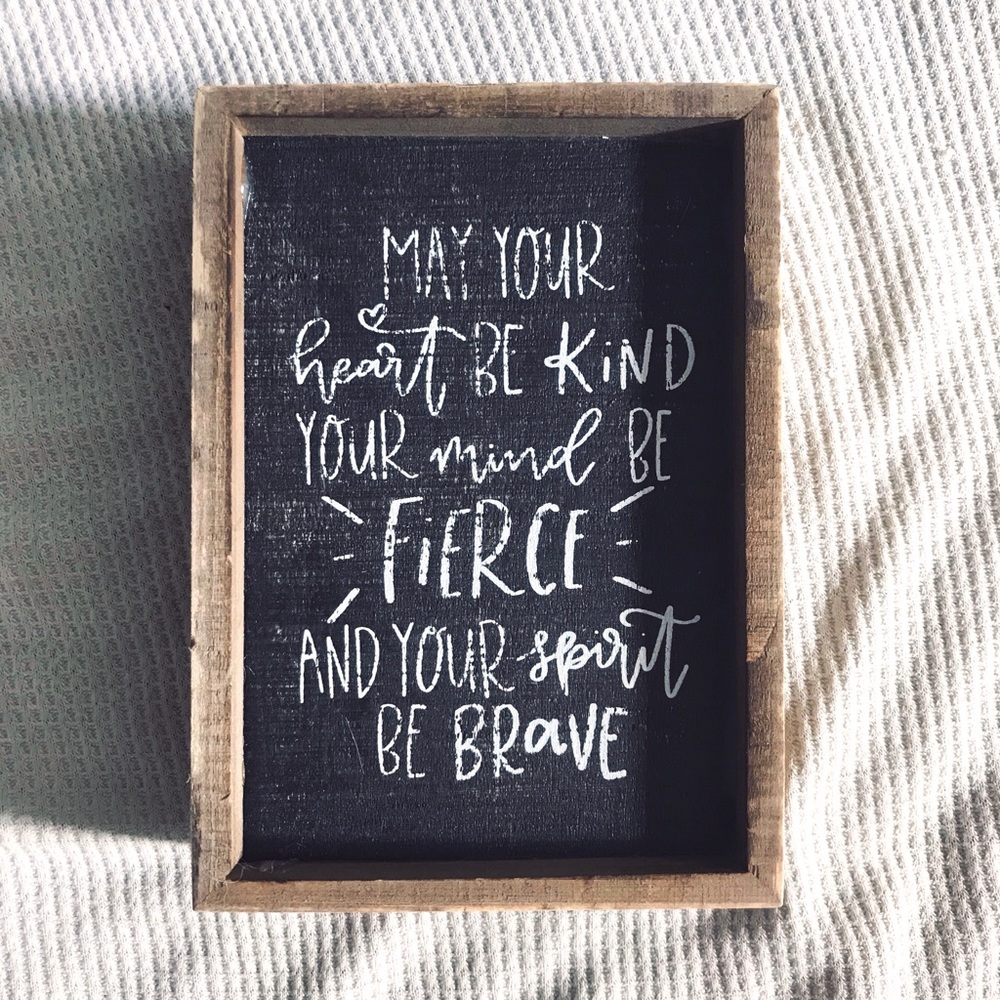 MAY YOUR
heart BE KiND
YOUR mind BE
FiERCE
AND YOUR spirit
BE BRaVE